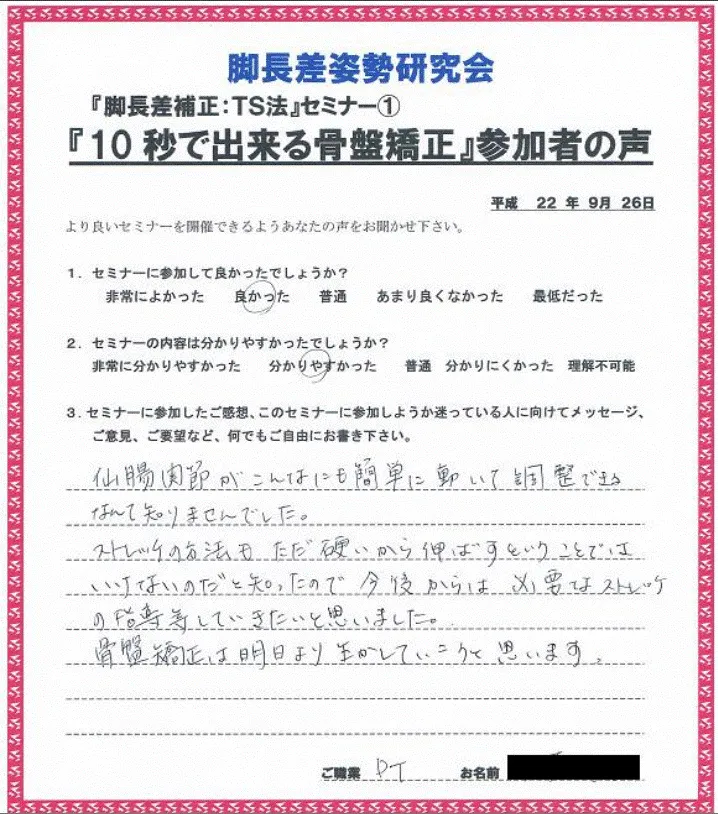 脚長差姿勢研究会
『脚長差補正：TS法』セミナー①
『10秒で出来る骨盤矯正』参加者の声
平成 22 年 9月 26日
より良いセミナーを開催できるようあなたの声をお聞かせ下さい。
1．セミナーに参加して良かったでしょうか？
非常によかった 良かった 普通 あまり良くなかった 最低だった
2．セミナーの内容は分かりやすかったでしょうか？
非常に分かりやすかった 分かりやすかった 普通 分かりにくかった 理解不可能
3．セミナーに参加したご感想、このセミナーに参加しようか迷っている人に向けてメッセージ、
ご意見、ご要望など、何でもご自由にお書き下さい。
仙腸関節がこんなにも簡単に動いて調整できる
なんて知りませんでした。
ストレッチの方法もただ硬いから伸ばすということでは
いけないのだと知ったので今後からは必要なストレッチ
の指導等していきたいと思いました。
骨盤矯正は明日より生かしていこうと思います。
ご職業 PT お名前